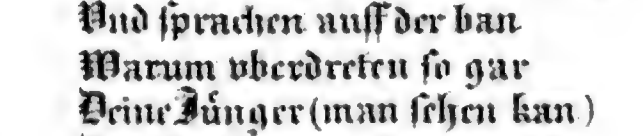 Vnd sprachen auff der ban
Warum vberdreten so gar
Deine Jünger (man sehen kan)